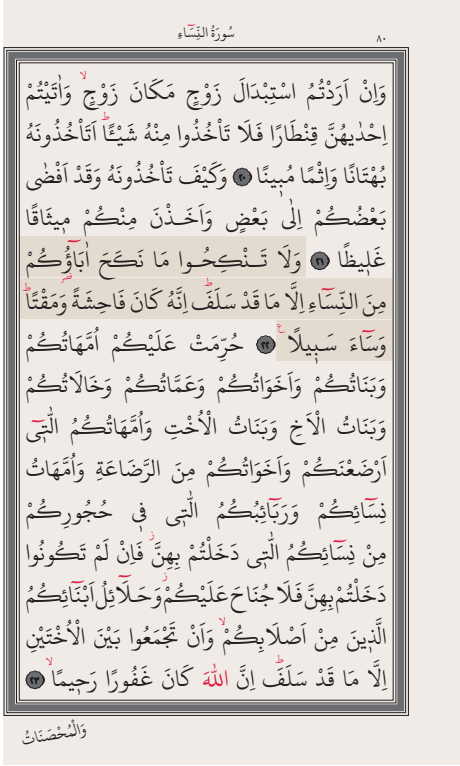 سُورَةُ النِّسَٓاءِ
٨٠
وَاِنْ اَرَدْتُمُ اسْتِبْدَالَ زَوْجٍ مَكَانَ زَوْجٍۙ وَاٰتَيْتُمْ
اِحْدٰيهُنَّ قِنْطَارًا فَلَا تَأْخُذُوا مِنْهُ شَيْـًٔاۜ اَتَأْخُذُونَهُ
بُهْتَانًا وَاِثْمًا مُب۪ينًا ﴿٢٠﴾ وَكَيْفَ تَأْخُذُونَهُ وَقَدْ اَفْضٰى
بَعْضُكُمْ اِلٰى بَعْضٍ وَاَخَذْنَ مِنْكُمْ م۪يثَاقًا
غَل۪يظًا ﴿٢١﴾ وَلَا تَنْكِحُوا مَا نَكَحَ اٰبَٓاؤُ۬كُمْ
مِنَ النِّسَٓاءِ اِلَّا مَا قَدْ سَلَفَۜ اِنَّهُ كَانَ فَاحِشَةً وَمَقْتًاۜ
وَسَٓاءَ سَب۪يلًا۟ ﴿٢٢﴾ حُرِّمَتْ عَلَيْكُمْ اُمَّهَاتُكُمْ
وَبَنَاتُكُمْ وَاَخَوَاتُكُمْ وَعَمَّاتُكُمْ وَخَالَاتُكُمْ
وَبَنَاتُ الْاَخِ وَبَنَاتُ الْاُخْتِ وَاُمَّهَاتُكُمُ الّٰت۪ٓي
اَرْضَعْنَكُمْ وَاَخَوَاتُكُمْ مِنَ الرَّضَاعَةِ وَاُمَّهَاتُ
نِسَٓائِكُمْ وَرَبَٓائِبُكُمُ الّٰت۪ي ف۪ي حُجُورِكُمْ
مِنْ نِسَٓائِكُمُ الّٰت۪ي دَخَلْتُمْ بِهِنَّۘ فَاِنْ لَمْ تَكُونُوا
دَخَلْتُمْ بِهِنَّ فَلَا جُنَاحَ عَلَيْكُمْۘ وَحَلَٓائِلُ اَبْنَٓائِكُمُ
الَّذ۪ينَ مِنْ اَصْلَابِكُمْۙ وَاَنْ تَجْمَعُوا بَيْنَ الْاُخْتَيْنِ
اِلَّا مَا قَدْ سَلَفَۜ اِنَّ اللّٰهَ كَانَ غَفُورًا رَح۪يمًاۙ ﴿٢٣﴾
وَالْمُحْصَنَاتُ